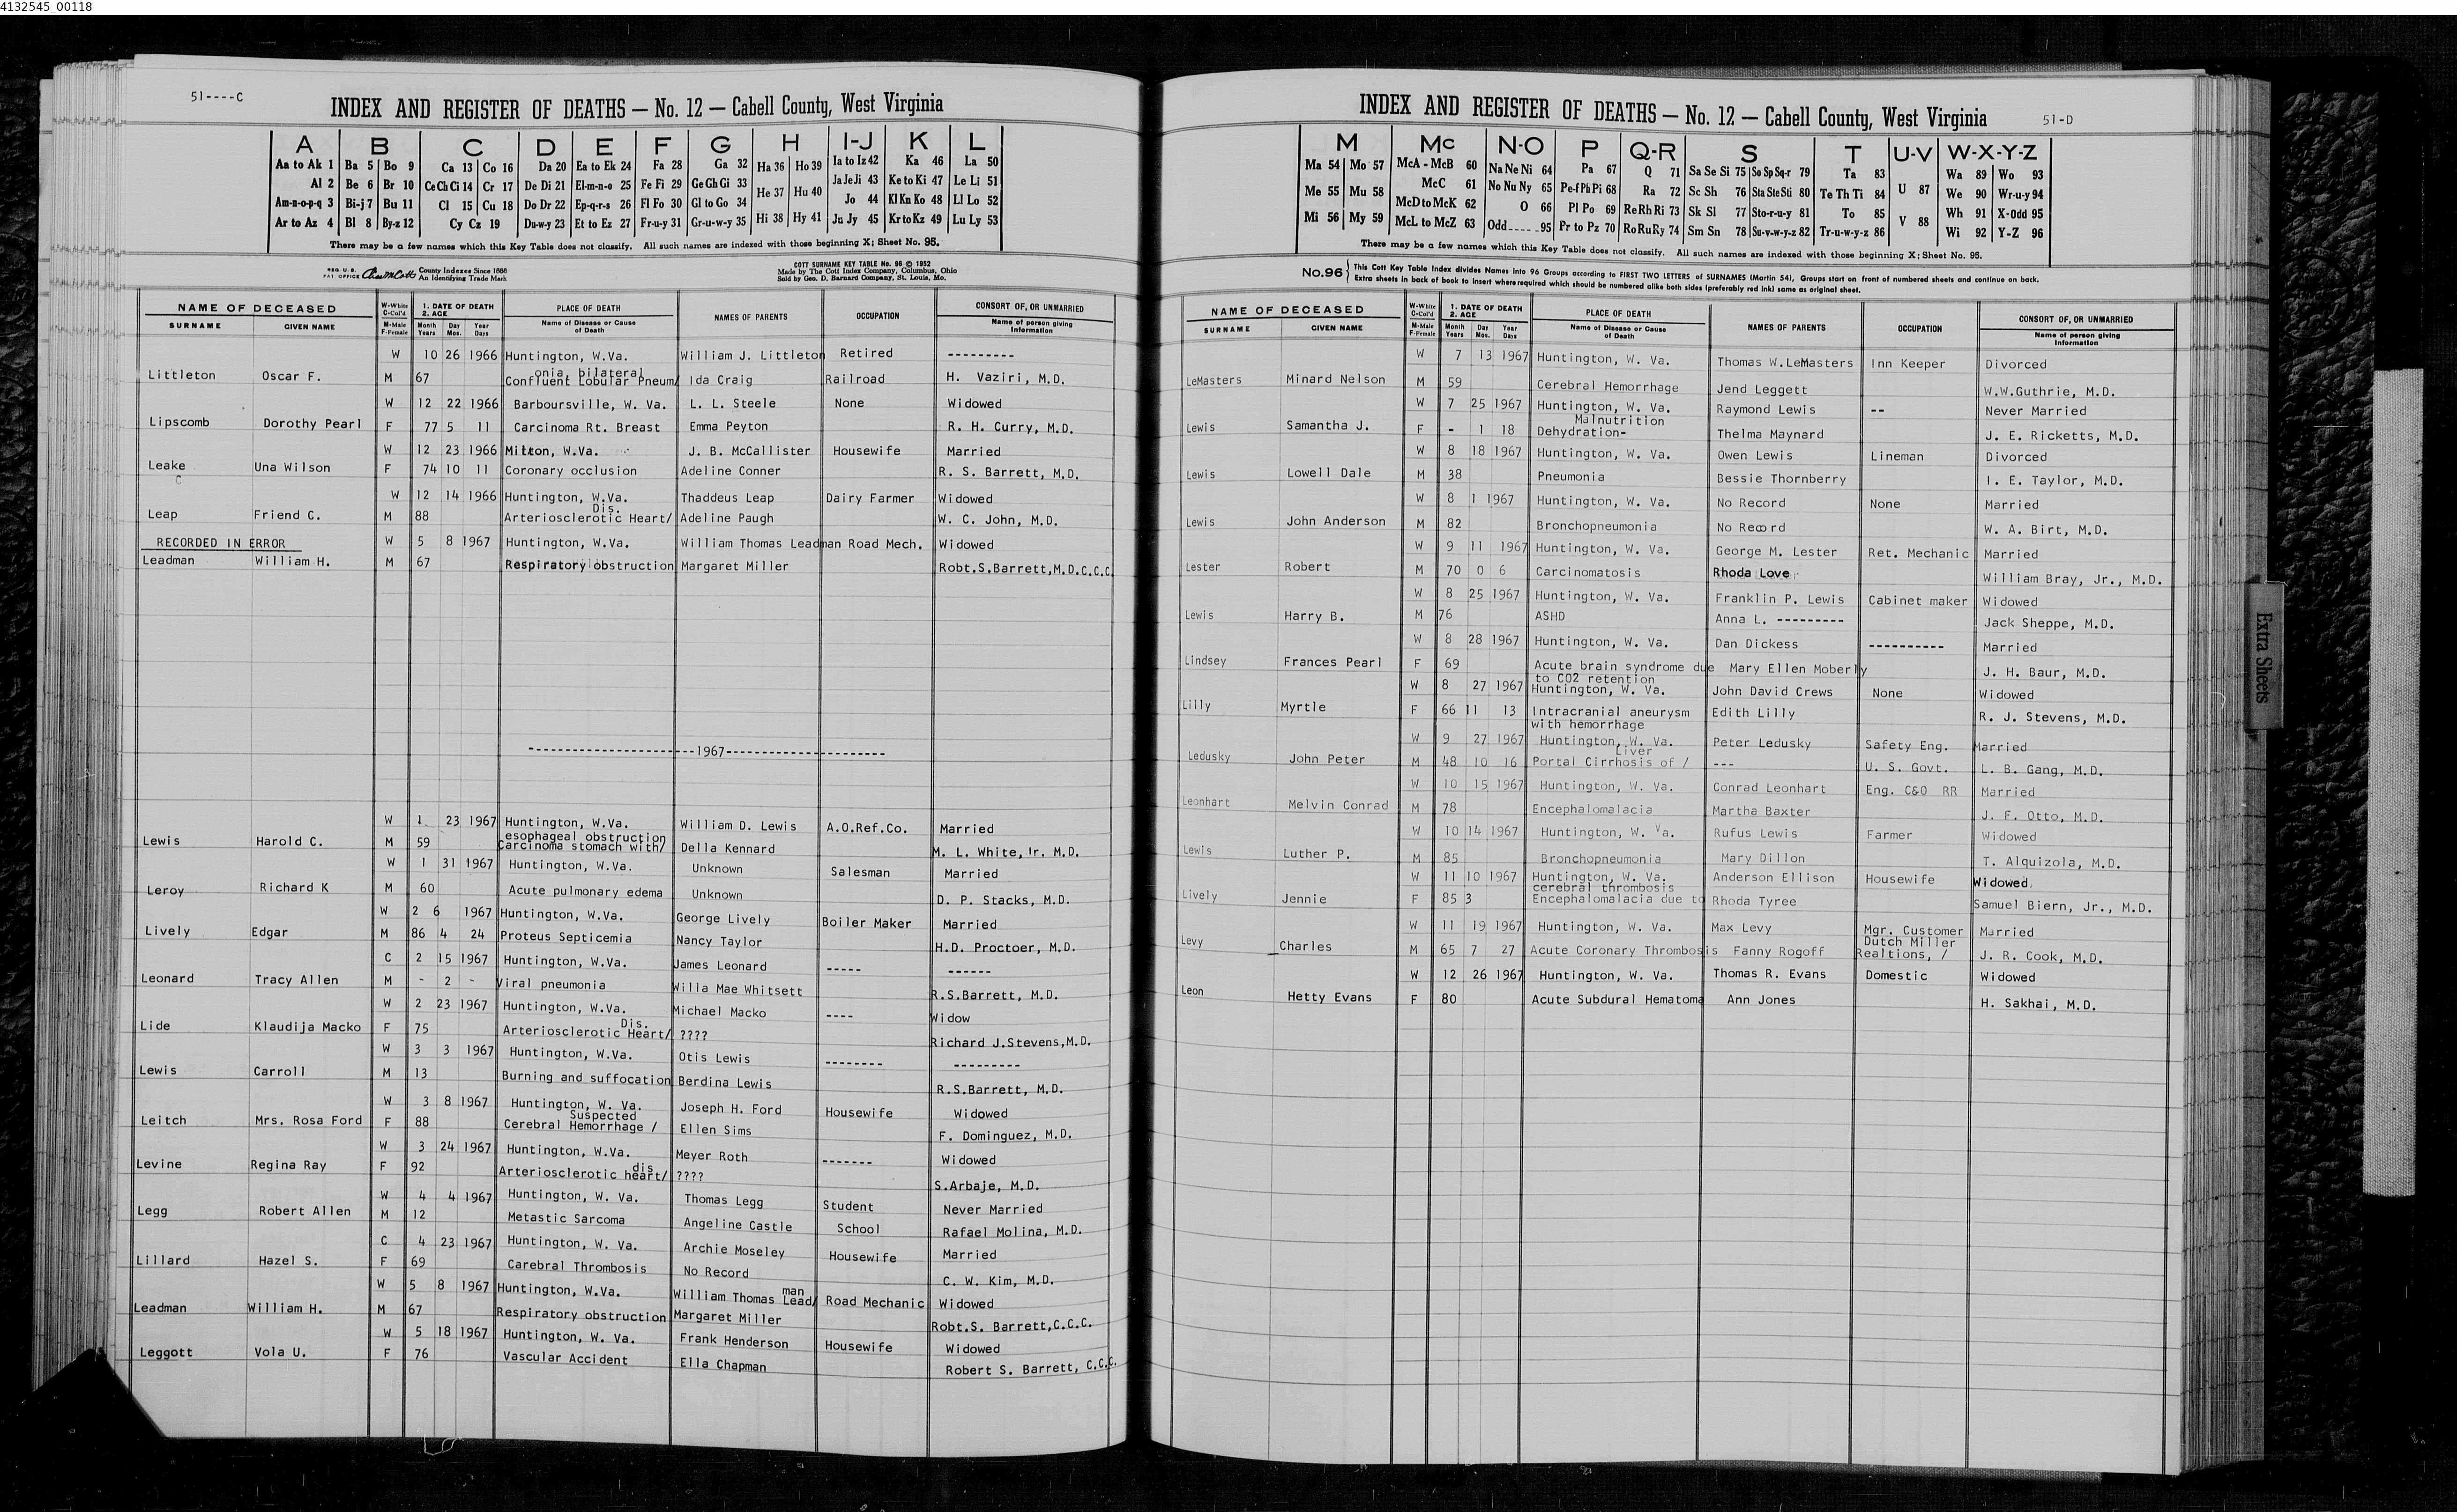 4132545_00118
51----C
INDEX AND REGISTER OF DEATHS — No. 12 — Cabell County, West Virginia
A B C D E F G H I-J K L
Aa to Ak 1 Ba 5 Bo 9 Ca 13 Co 16 Da 20 Ea to Ek 24 Fa 28 Ga 32 Ha 36 Ho 39 Ia to Iz 42 Ka 46 La 50
Al 2 Be 6 Br 10 Ce Ch Ci 14 Cr 17 De Di 21 El-m-n-o 25 Fe Fi 29 Ge Gh Gi 33 He 37 Hu 40 Ja Je Ji 43 Ke to Ki 47 Le Li 51
Am-n-o-p-q 3 Bi-j 7 Bu 11 Cl 15 Cu 18 Do Dr 22 Ep-q-r-s 26 Fl Fo 30 Gl to Go 34 Jo 44 Kl Kn Ko 48 Ll Lo 52
Ar to Az 4 Bl 8 By-z 12 Cy Cz 19 Du-w-y 23 Et to Ez 27 Fr-u-y 31 Gr-u-w-y 35 Hi 38 Hy 41 Ju Jy 45 Kr to Kz 49 Lu Ly 53
There may be a few names which this Key Table does not classify. All such names are indexed with those beginning X; Sheet No. 95.
REG. U.S. PAT. OFFICE County Indexes Since 1888 An Identifying Trade Mark
COTT SURNAME KEY TABLE No. 96 © 1952
Made by The Cott Index Company, Columbus, Ohio
Sold by Geo. D. Barnard Company, St. Louis, Mo.
NAME OF DECEASED W-White C-Col'd 1. DATE OF DEATH 2. AGE PLACE OF DEATH NAMES OF PARENTS OCCUPATION CONSORT OF, OR UNMARRIED
SURNAME GIVEN NAME M-Male F-Female Month Years Day Mos. Year Days Name of Disease or Cause of Death Name of person giving Information
W 10 26 1966 Huntington, W.Va. William J. Littleton Retired ---------
onia, bilateral
Littleton Oscar F. M 67 Confluent Lobular Pneum/ Ida Craig Railroad H. Vaziri, M.D.
W 12 22 1966 Barboursville, W. Va. L. L. Steele None Widowed
Lipscomb Dorothy Pearl F 77 5 11 Carcinoma Rt. Breast Emma Peyton R. H. Curry, M.D.
W 12 23 1966 Milton, W.Va. J. B. McCallister Housewife Married
Leake Una Wilson F 74 10 11 Coronary occlusion Adeline Conner R. S. Barrett, M.D.
W 12 14 1966 Huntington, W.Va. Thaddeus Leap Dairy Farmer Widowed
Dis.
Leap Friend C. M 88 Arteriosclerotic Heart/ Adeline Paugh W. C. John, M.D.
RECORDED IN ERROR W 5 8 1967 Huntington, W.Va. William Thomas Leadman Road Mech. Widowed
Leadman William H. M 67 Respiratory obstruction Margaret Miller Robt.S.Barrett,M.D.C.C.C.
----------------------1967---------------------
W 1 23 1967 Huntington, W.Va. William D. Lewis A.O.Ref.Co. Married
esophageal obstruction
Lewis Harold C. M 59 carcinoma stomach with/ Della Kennard M. L. White, Jr. M.D.
W 1 31 1967 Huntington, W.Va. Unknown Salesman Married
Leroy Richard K M 60 Acute pulmonary edema Unknown D. P. Stacks, M.D.
W 2 6 1967 Huntington, W.Va. George Lively Boiler Maker Married
Lively Edgar M 86 4 24 Proteus Septicemia Nancy Taylor H.D. Proctoer, M.D.
C 2 15 1967 Huntington, W.Va. James Leonard ----- ------
Leonard Tracy Allen M - 2 - Viral pneumonia Willa Mae Whitsett R.S.Barrett, M.D.
W 2 23 1967 Huntington, W.Va. Michael Macko ---- Widow
Dis.
Lide Klaudija Macko F 75 Arteriosclerotic Heart/ ???? Richard J.Stevens,M.D.
W 3 3 1967 Huntington, W.Va. Otis Lewis -------- ---------
Lewis Carroll M 13 Burning and suffocation Berdina Lewis R.S.Barrett, M.D.
W 3 8 1967 Huntington, W. Va. Joseph H. Ford Housewife Widowed
Suspected
Leitch Mrs. Rosa Ford F 88 Cerebral Hemorrhage / Ellen Sims F. Dominguez, M.D.
W 3 24 1967 Huntington, W.Va. Meyer Roth ------- Widowed
dis
Levine Regina Ray F 92 Arteriosclerotic heart/ ???? S.Arbaje, M.D.
W 4 4 1967 Huntington, W. Va. Thomas Legg Student Never Married
Legg Robert Allen M 12 Metastic Sarcoma Angeline Castle School Rafael Molina, M.D.
C 4 23 1967 Huntington, W. Va. Archie Moseley Housewife Married
Lillard Hazel S. F 69 Carebral Thrombosis No Record C. W. Kim, M.D.
man
W 5 8 1967 Huntington, W.Va. William Thomas Lead/ Road Mechanic Widowed
Leadman William H. M 67 Respiratory obstruction Margaret Miller Robt.S. Barrett,C.C.C.
W 5 18 1967 Huntington, W. Va. Frank Henderson Housewife Widowed
Leggott Vola U. F 76 Vascular Accident Ella Chapman Robert S. Barrett, C.C.C.
INDEX AND REGISTER OF DEATHS — No. 12 — Cabell County, West Virginia
51-D
M Mc N-O P Q-R S T U-V W-X-Y-Z
Ma 54 Mo 57 McA - McB 60 Na Ne Ni 64 Pa 67 Q 71 Sa Se Si 75 So Sp Sq-r 79 Ta 83 Wa 89 Wo 93
Me 55 Mu 58 McC 61 No Nu Ny 65 Pe-f Ph Pi 68 Ra 72 Sc Sh 76 Sta Ste Sti 80 Te Th Ti 84 U 87 We 90 Wr-u-y 94
McD to McK 62 O 66 Pl Po 69 Re Rh Ri 73 Sk Sl 77 Sto-r-u-y 81 To 85 Wh 91 X-Odd 95
Mi 56 My 59 McL to McZ 63 Odd-----95 Pr to Pz 70 Ro Ru Ry 74 Sm Sn 78 Su-v-w-y-z 82 Tr-u-w-y-z 86 V 88 Wi 92 Y-Z 96
There may be a few names which this Key Table does not classify. All such names are indexed with those beginning X; Sheet No. 95.
No.96 This Cott Key Table Index divides Names into 96 Groups according to FIRST TWO LETTERS of SURNAMES (Martin 54), Groups start on front of numbered sheets and continue on back.
Extra sheets in back of book to insert where required which should be numbered alike both sides (preferably red ink) same as original sheet.
NAME OF DECEASED W-White C-Col'd 1. DATE OF DEATH 2. AGE PLACE OF DEATH NAMES OF PARENTS OCCUPATION CONSORT OF, OR UNMARRIED
SURNAME GIVEN NAME M-Male F-Female Month Years Day Mos. Year Days Name of Disease or Cause of Death Name of person giving Information
W 7 13 1967 Huntington, W. Va. Thomas W.LeMasters Inn Keeper Divorced
LeMasters Minard Nelson M 59 Cerebral Hemorrhage Jend Leggett W.W.Guthrie, M.D.
W 7 25 1967 Huntington, W. Va. Raymond Lewis -- Never Married
Malnutrition
Lewis Samantha J. F - 1 18 Dehydration- Thelma Maynard J. E. Ricketts, M.D.
W 8 18 1967 Huntington, W. Va. Owen Lewis Lineman Divorced
Lewis Lowell Dale M 38 Pneumonia Bessie Thornberry I. E. Taylor, M.D.
W 8 1 1967 Huntington, W. Va. No Record None Married
Lewis John Anderson M 82 Bronchopneumonia No Record W. A. Birt, M.D.
W 9 11 1967 Huntington, W. Va. George M. Lester Ret. Mechanic Married
Lester Robert M 70 0 6 Carcinomatosis Rhoda Love William Bray, Jr., M.D.
W 8 25 1967 Huntington, W. Va. Franklin P. Lewis Cabinet maker Widowed
Lewis Harry B. M 76 ASHD Anna L. --------- Jack Sheppe, M.D.
W 8 28 1967 Huntington, W. Va. Dan Dickess ---------- Married
Lindsey Frances Pearl F 69 Acute brain syndrome due Mary Ellen Moberly J. H. Baur, M.D.
to CO2 retention
W 8 27 1967 Huntington, W. Va. John David Crews None Widowed
Lilly Myrtle F 66 11 13 Intracranial aneurysm Edith Lilly R. J. Stevens, M.D.
with hemorrhage
W 9 27 1967 Huntington, W. Va. Peter Ledusky Safety Eng. Married
Liver
Ledusky John Peter M 48 10 16 Portal Cirrhosis of / --- U. S. Govt. L. B. Gang, M.D.
W 10 15 1967 Huntington, W. Va. Conrad Leonhart Eng. C&O RR Married
Leonhart Melvin Conrad M 78 Encephalomalacia Martha Baxter J. F. Otto, M.D.
W 10 14 1967 Huntington, W. Va. Rufus Lewis Farmer Widowed
Lewis Luther P. M 85 Bronchopneumonia Mary Dillon T. Alquizola, M.D.
W 11 10 1967 Huntington, W. Va. Anderson Ellison Housewife Widowed
cerebral thrombosis
Lively Jennie F 85 3 Encephalomalacia due to Rhoda Tyree Samuel Biern, Jr., M.D.
W 11 19 1967 Huntington, W. Va. Max Levy Mgr. Customer Married
Dutch Miller
Levy Charles M 65 7 27 Acute Coronary Thrombosis Fanny Rogoff Realtions, / J. R. Cook, M.D.
W 12 26 1967 Huntington, W. Va. Thomas R. Evans Domestic Widowed
Leon Hetty Evans F 80 Acute Subdural Hematoma Ann Jones H. Sakhai, M.D.
Extra Sheets